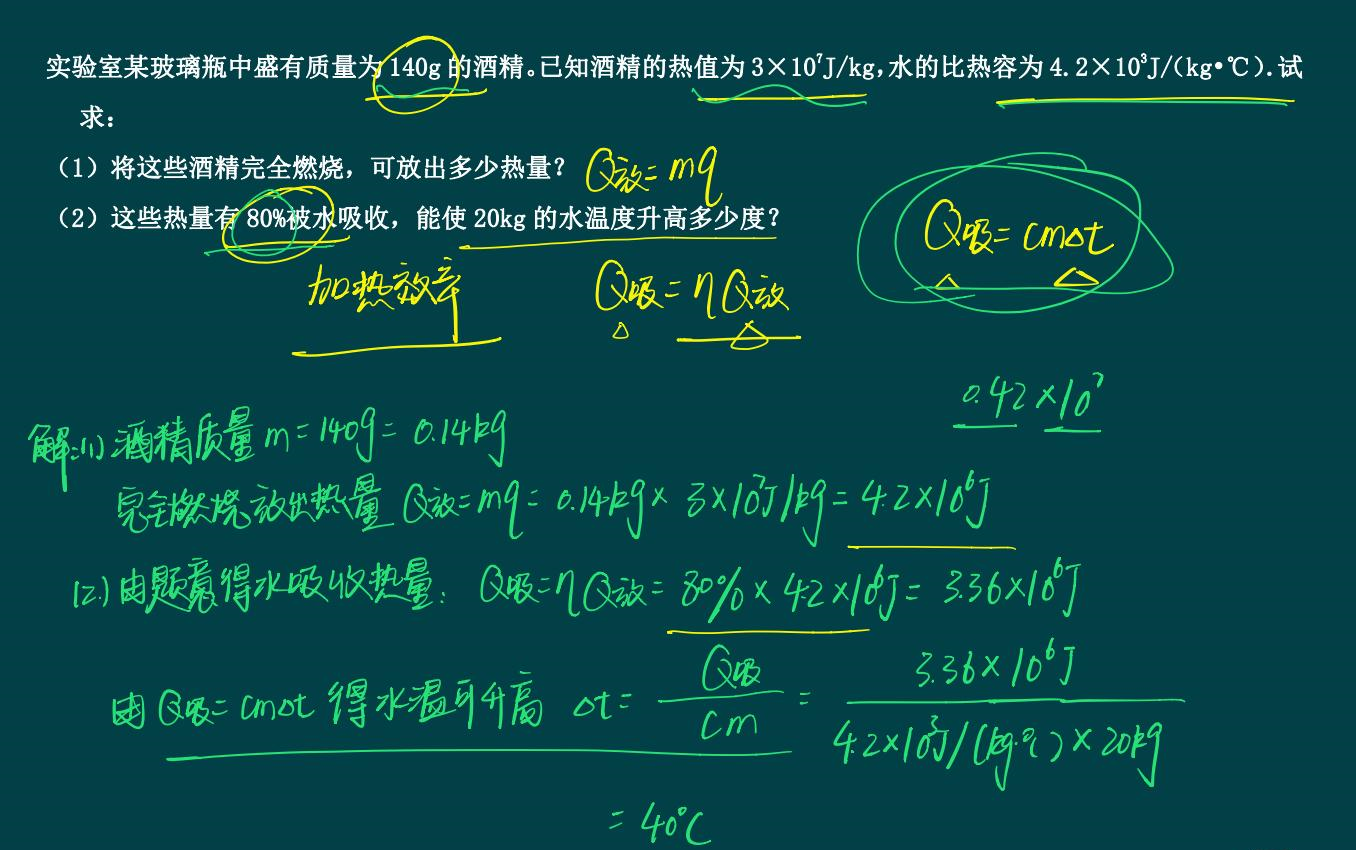 实验室某玻璃瓶中盛有质量为 140g 的酒精。已知酒精的热值为 3×10⁷J/kg,水的比热容为 4.2×10³J/(kg•℃).试
求：
（1）将这些酒精完全燃烧，可放出多少热量？ Q放=mq
（2）这些热量有 80%被水吸收，能使 20kg 的水温度升高多少度？
Q吸=cm△t
加热效率 Q吸=ηQ放
0.42×10⁷
解:(1)酒精质量 m=140g=0.14kg
完全燃烧放出热量 Q放=mq=0.14kg×3×10⁷J/kg=4.2×10⁶J
(2)由题意得水吸收热量: Q吸=ηQ放=80%×4.2×10⁶J=3.36×10⁶J
由Q吸=cm△t 得水温可升高 △t= Q吸/cm = 3.36×10⁶J/4.2×10³J/(kg·℃)×20kg
=40℃